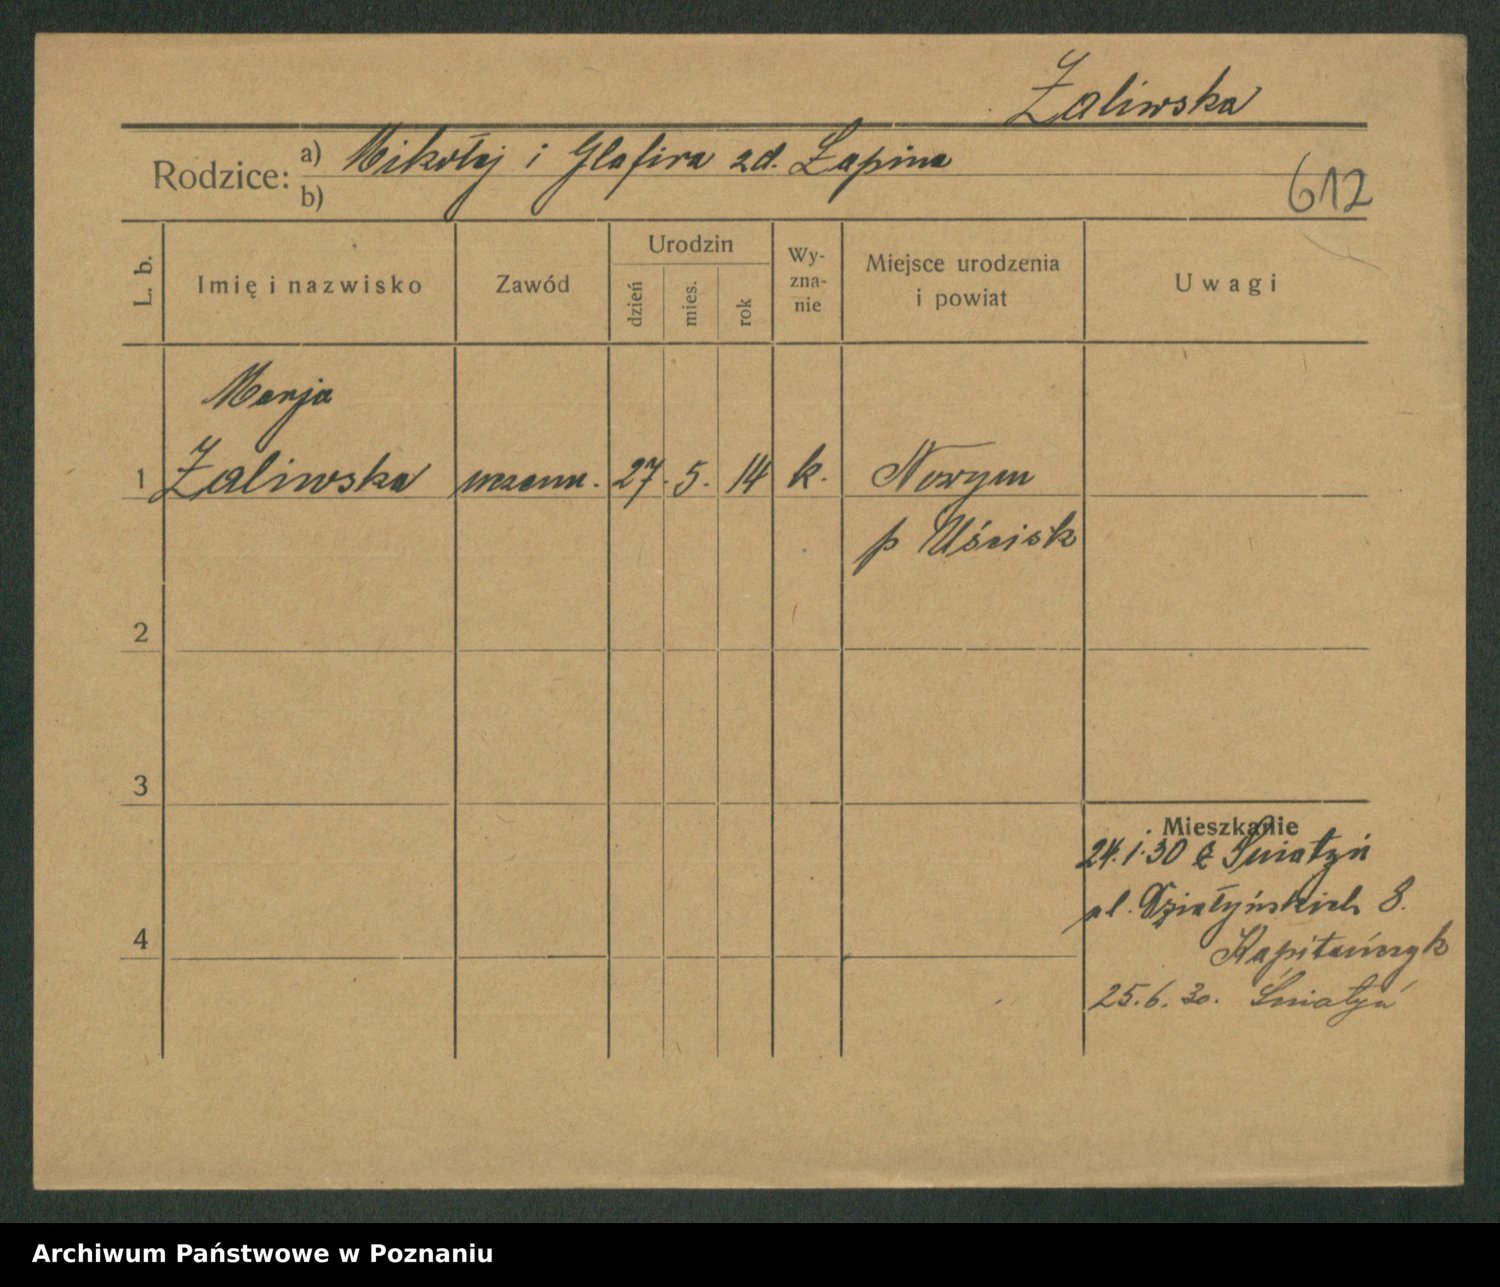 Żaliwska
Rodzice: a) Mikołaj i Glafira zd. Łapina
b)
612
L. b.
Imię i nazwisko
Zawód
Urodzin
dzień
mies.
rok
Wy-
zna-
nie
Miejsce urodzenia
i powiat
Uwagi
Marja
1 Żaliwska uczenn. 27. 5. 14 k. Nowym
p Uścisk
2
3
Mieszkanie
24.1.30 z Śniatyń
ul. Działyńskich 8.
4
Kapitańczyk
25.6.30. Śniatyń
Archiwum Państwowe w Poznaniu